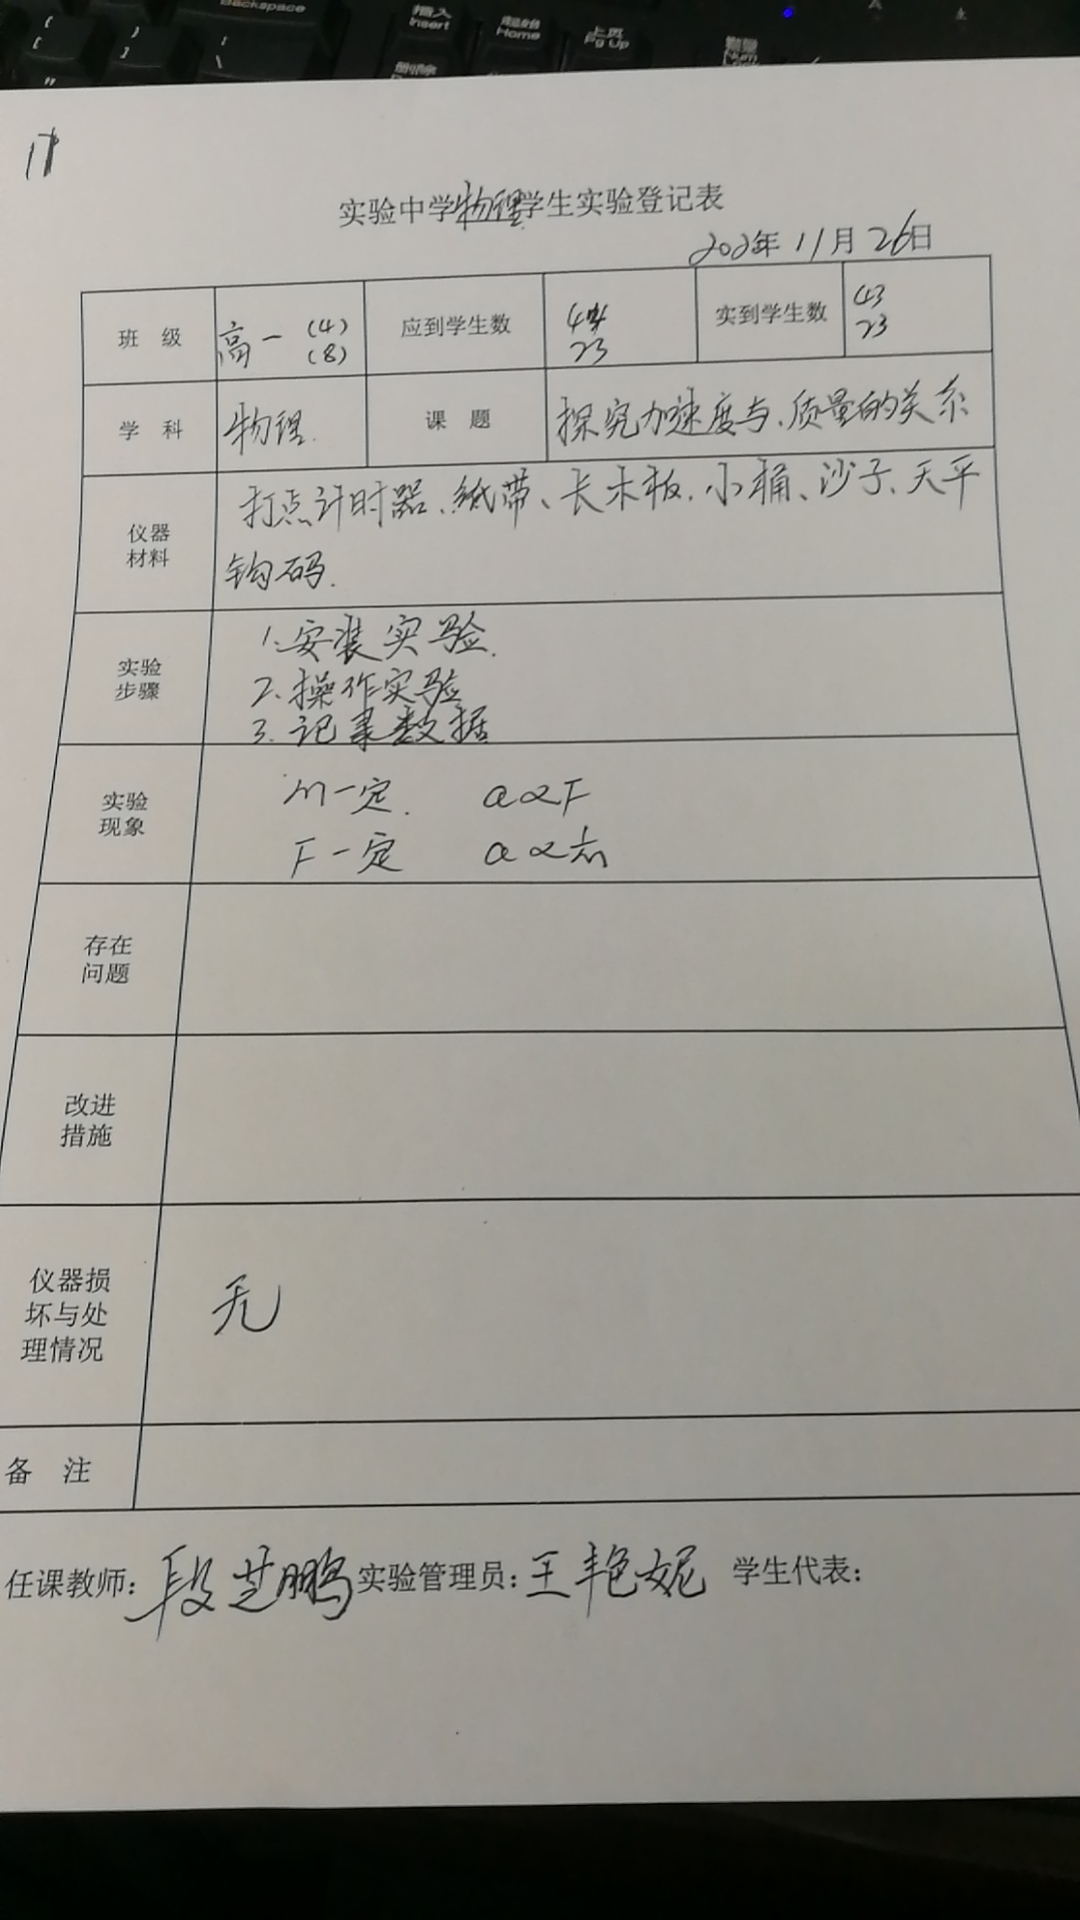 Backspace
插入
Insert
起始
Home
上页
Pg Up
删除
17
实验中学物理学生实验登记表
202年 11月 26日
班 级 高一 (4) 应到学生数 实到学生数 43
(8) 23 23
学 科 物理. 课 题 探究加速度与、质量的关系
仪器
材料
打点计时器、纸带、长木板、小桶、沙子、天平
钩码.
实验
步骤
1.安装实验.
2.操作实验
3.记录数据
实验
现象
m一定. a∝F
F一定 a∝1/m
存在
问题
改进
措施
仪器损
坏与处
理情况
无
备 注
任课教师: 段芝鹏 实验管理员: 王艳妮 学生代表: